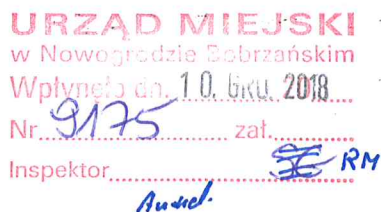 URZĄD MIEJSKI
w Nowogrodzie Bobrzańskim
Wpłynęło dn. 10. GRU. 2018
Nr 9175 zał.
Inspektor RM